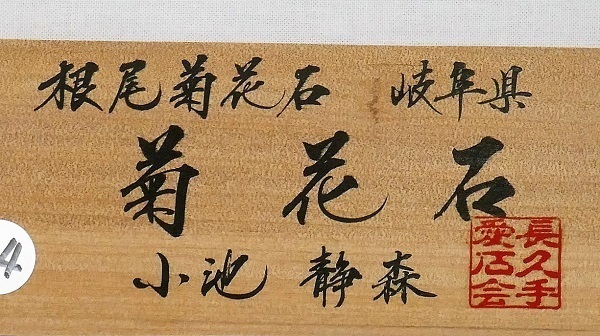 根尾菊花石 岐阜県
菊花石
小池 静森
長久手
愛石会
4